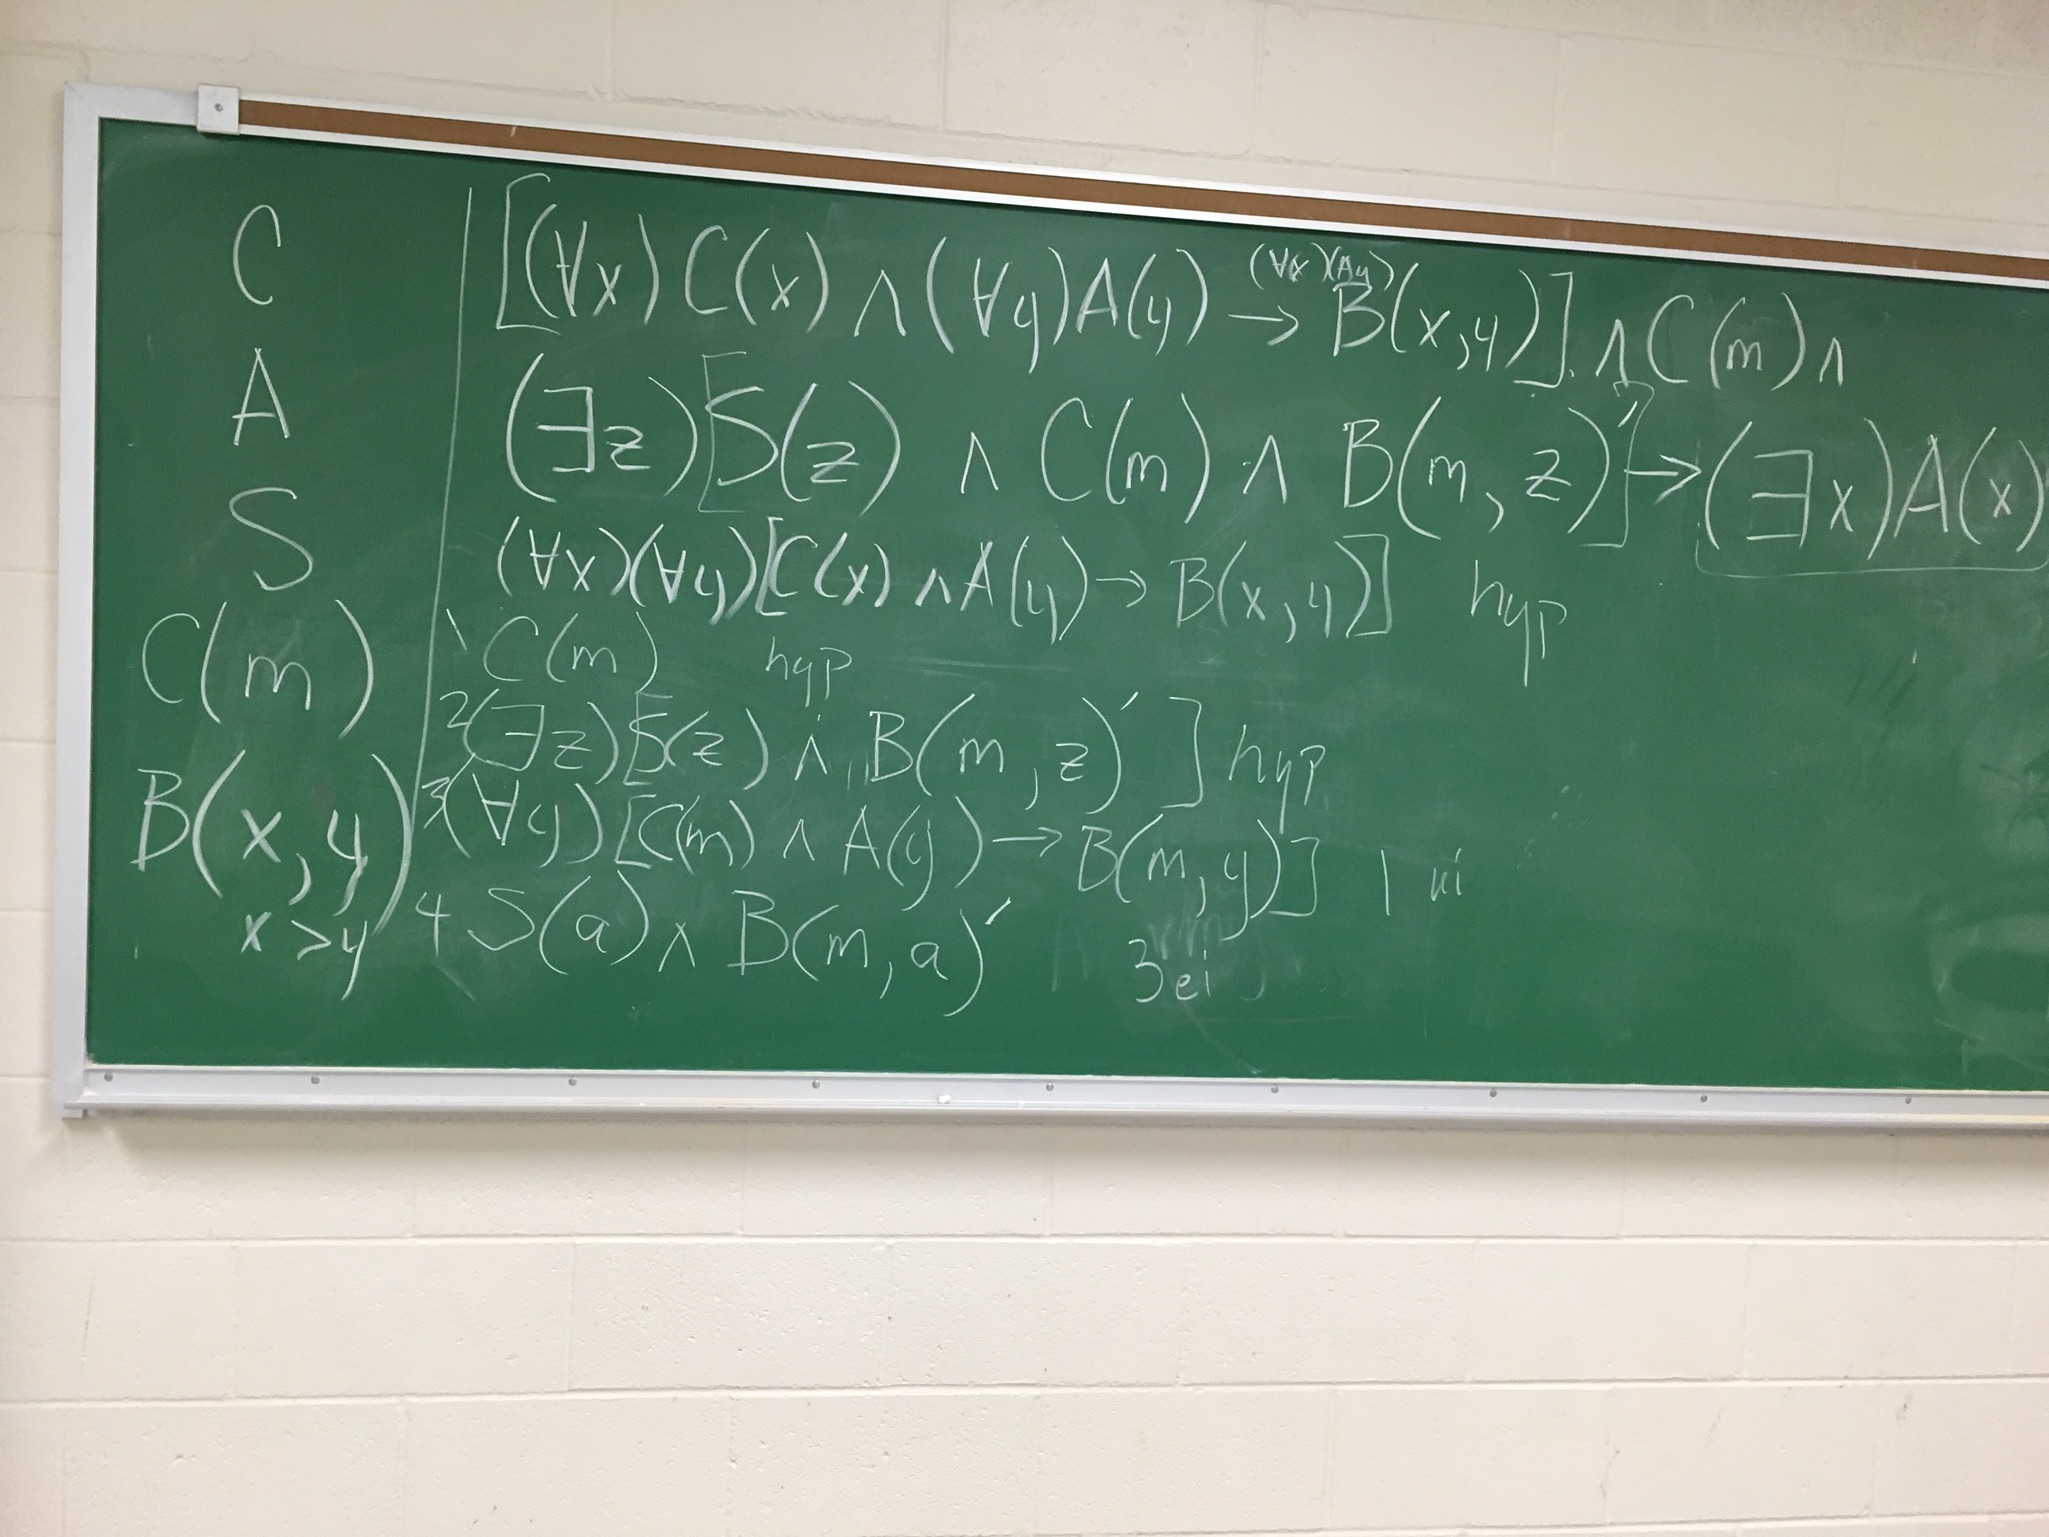 C
A
S
C(m)
B(x,y)
x>y
(∀x)(∀y)
[(∀x)C(x)∧(∀y)A(y)→B(x,y)]∧C(m)∧
(∃z)[S(z) ∧ C(m) ∧ B(m,z)′]→(∃x)A(x)
(∀x)(∀y)[C(x)∧A(y)→B(x,y)] hyp
1 C(m) hyp
2(∃z)[S(z) ∧ B(m,z)′] hyp
3(∀y)[C(m)∧A(y)→B(m,y)] 1 ui
4 S(a)∧B(m,a)′ 3 ei